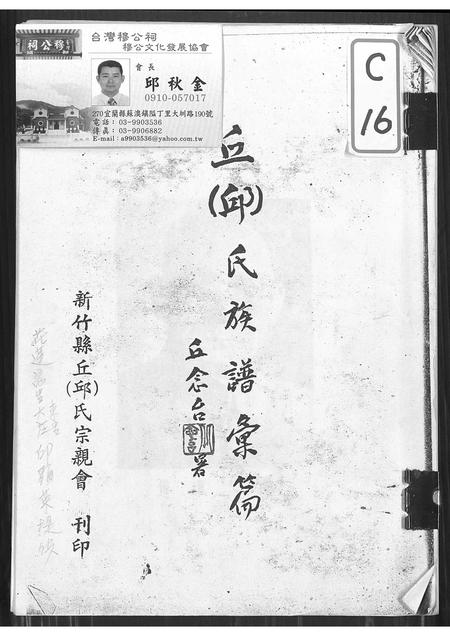 穆公祠
台灣穆公祠
穆公文化發展協會
會長
邱秋金
0910-057017
270宜蘭縣蘇澳鎮隘丁里大圳路190號
電話：03-9903536
傳真：03-9906882
E-mail：a9903536@yahoo.com.tw
C
16
丘(邱)氏族譜彙篇
丘念台署
新竹縣丘(邱)氏宗親會 刊印